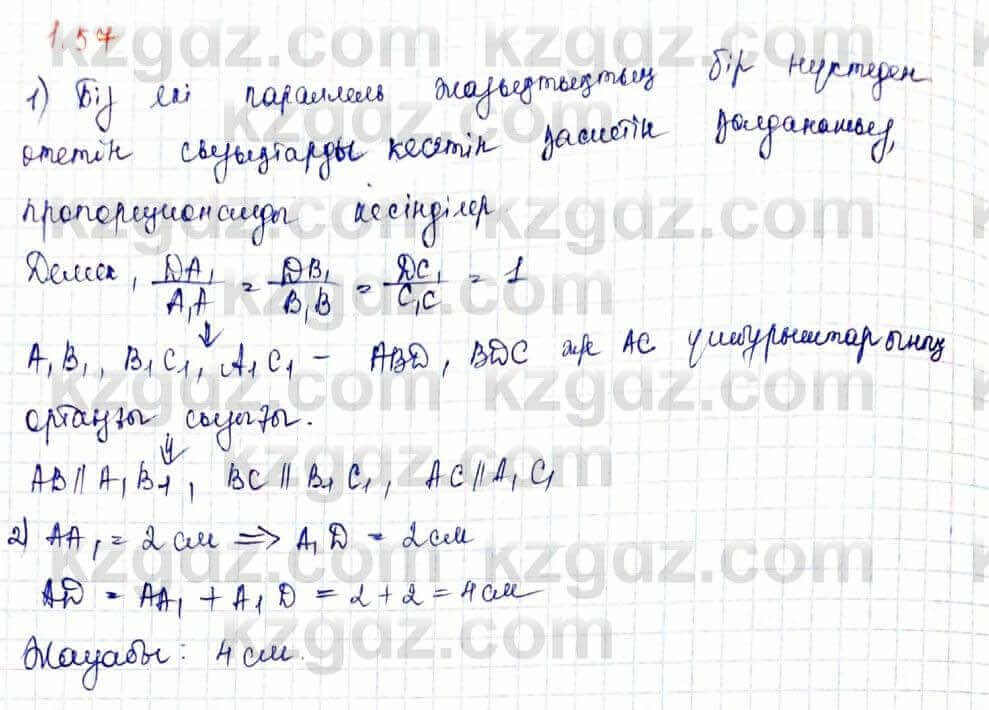 1.57
1) Біз екі параллель жазықтықтың бір нүктеден
өтетін сызықтарды кесетін қасиетін қолданамыз,
пропорционалды кесінділер.
Демек, DA₁/A₁A = DB₁/B₁B = DC₁/C₁C = 1
↓
A₁B₁, B₁C₁, A₁C₁ – ABD, BDC және AC үшбұрыштарының
ортаңғы сызығы.
↓
AB || A₁B₁, BC || B₁C₁, AC || A₁C₁
2) AA₁ = 2 см => A₁D = 2 см
AD = AA₁ + A₁D = 2 + 2 = 4 см
Жауабы: 4 см.
kzgdz.com